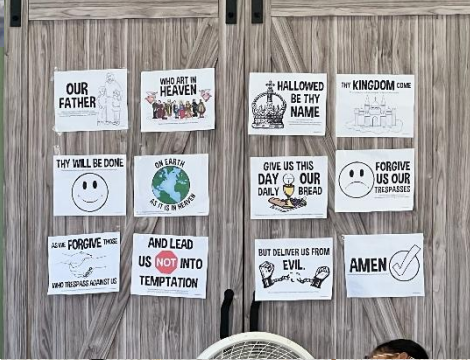 OUR
FATHER
WHO ART IN
HEAVEN
HALLOWED
BE THY
NAME
THY KINGDOM COME
THY WILL BE DONE
ON EARTH
AS IT IS IN HEAVEN
GIVE US THIS
DAY OUR
DAILY BREAD
FORGIVE
US OUR
TRESPASSES
AS WE FORGIVE THOSE
WHO TRESPASS AGAINST US
AND LEAD
US NOT INTO
TEMPTATION
BUT DELIVER US FROM
EVIL.
AMEN